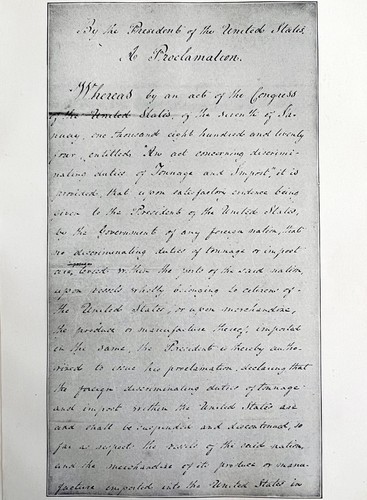 By the President of the United States.
A Proclamation.
Whereas by an act of the Congress
of the United States, of the seventh of Ja-
nuary, one thousand eight hundred and twenty
four, entitled, "An act concerning discrimi-
nating duties of Tonnage and Impost", it is
provided, that upon satisfactory evidence being
given to the President of the United States,
by the Government of any foreign nation, that
no discriminating duties of tonnage or impost
are levied within the ports of the said nation,
upon vessels wholly belonging to citizens of
the United States, or upon merchandise,
the produce or manufacture thereof, imported
in the same, the President is thereby autho-
rized to issue his proclamation, declaring that
the foreign discriminating duties of tonnage
and impost within the United States are
and shall be suspended and discontinued, so
far as respect the vessels of the said nation,
and the merchandise of its produce or manu-
facture imported into the United States in